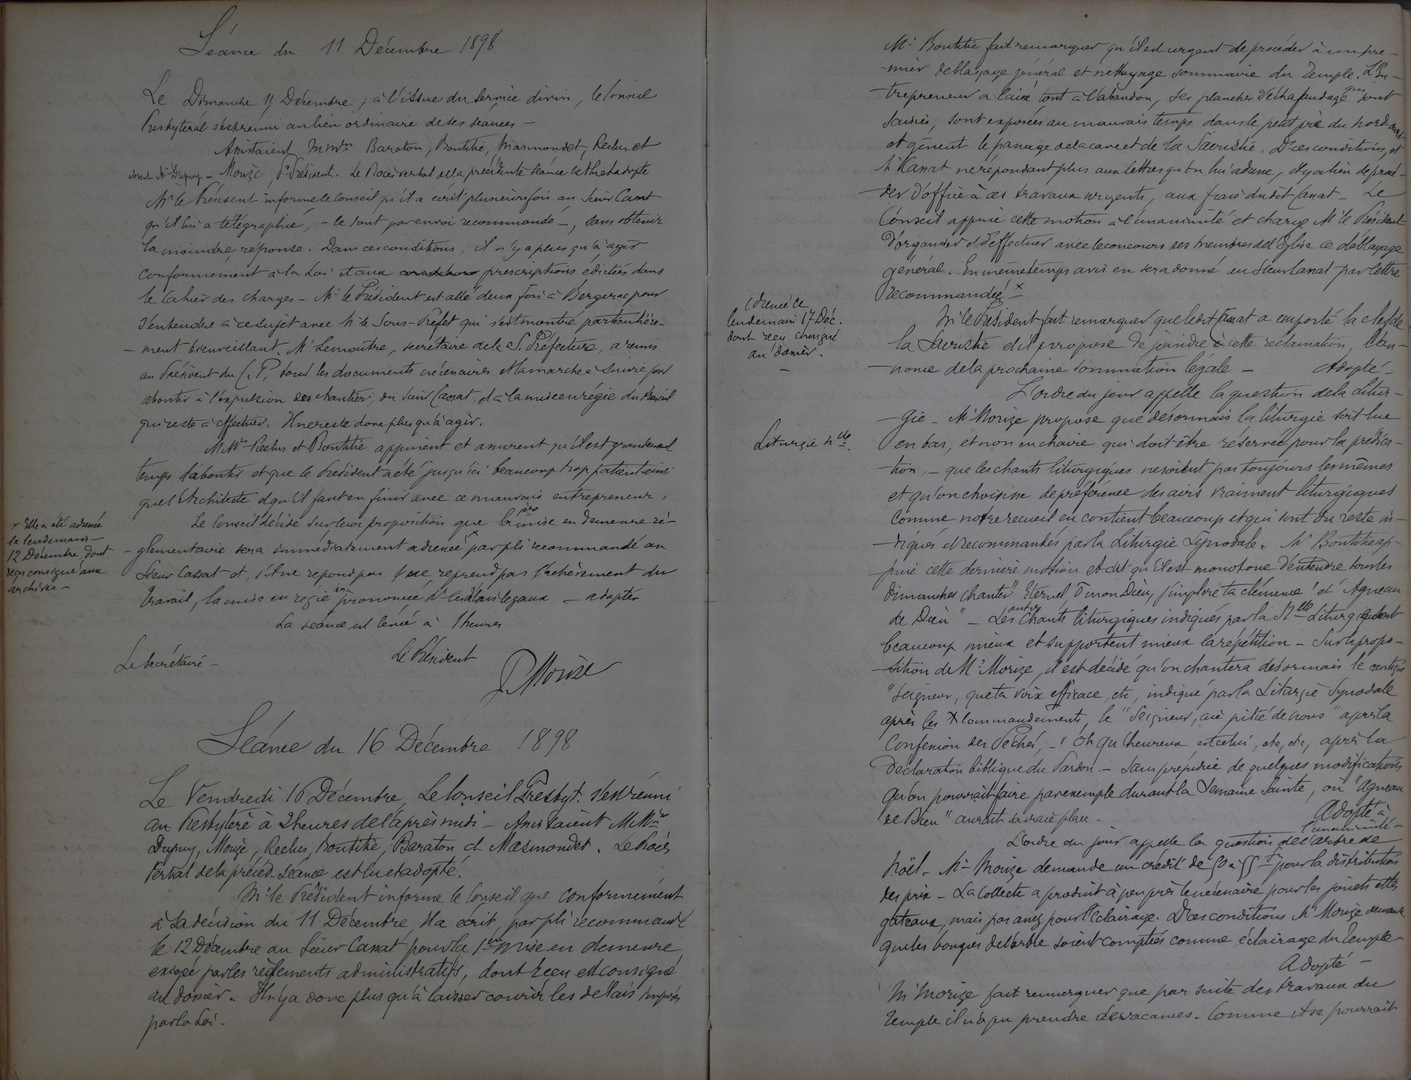 Séance du 11 Décembre 1898
Le Dimanche 11 Décembre, à l'issue du service divin, le Conseil
Presbytéral s'est réuni au lieu ordinaire de ses séances —
Assistaient M.Mrs Baraton, Bontitie, Masmondet, Reclus et
absent Mr Dupuy — Morize, Président. Le Procès verbal de la précédente séance est lu et adopté
Mr le Président informe le Conseil qu'il a écrit plusieurs fois au Sieur Cassat
qu'il lui a télégraphié, — le tout par envoi recommandé —, sans obtenir
la moindre réponse. Dans ces conditions, il n'y a plus qu'à agir
conformément à la Loi et aux prescriptions édictées dans
le Cahier des charges — Mr le Président est allé deux fois à Bergerac pour
s'entendre à ce sujet avec Mr le Sous-Préfet qui s'est montré particulière-
-ment bienveillant. Mr Lemoutre, secrétaire de la S. Préfecture, a remis
au Président du C. P. tous les documents nécessaires & la marche à suivre pour
aboutir à l'expulsion des chantiers, du Sieur Cassat, et à la mise en régie du travail
qui reste à effectuer. Il ne reste donc plus qu'à agir.
M.Mrs Reclus et Bontitie appuient et assurent qu'il est grandement
temps d'aboutir et que le Président a été jusqu'ici beaucoup trop patient ainsi
que l'Architecte et qu'il faut en finir avec ce mauvais entrepreneur.
Le Conseil décide sur leur proposition que la 1ère mise en demeure ré-
-glementaire sera immédiatement adressée x par pli recommandé au
Sieur Cassat et, s'il ne répond pas & ne reprend pas l'achèvement du
travail, la mise en régie sera prononcée dans les délais légaux — adopté
x Elle a été adressée
le lendemain —
12 Décembre, dont
reçu consigné aux
archives —
La séance est levée à 1 heures
Le Secrétaire —
Le Président
P. Morize
Séance du 16 Décembre 1898
Le Vendredi 16 Décembre, Le Conseil Presbyt. s'est réuni
au Presbytère à 2 heures de l'après midi — Assistaient M.Mrs
Dupuy, Morize, Reclus, Bontitie, Baraton et Masmondet. Le Procès
Verbal de la précéd. Séance est lu et adopté.
Mr le Président informe le Conseil que conformément
à la décision du 11 Décembre, il a écrit, par pli recommandé
le 12 Décembre au Sieur Cassat pour la 1ère mise en demeure
exigée par les règlements administratifs, dont reçu est consigné
au dossier. Il n'y a donc plus qu'à laisser courir les délais imposés
par la Loi.
Mr Bontitie fait remarquer qu'il est urgent de procéder à un pre-
-mier déblayage général et nettoyage sommaire du Temple. L'En-
-trepreneur a laissé tout à l'abandon, ses planches d'échafaudage qui sont
sauvées, sont exposées au mauvais temps dans le petit pré du nord ouest
et gênent le passage de la cave et de la Sacristie. Dans ces conditions, et
Mr Cassat ne répondant plus aux lettres qu'on lui adresse, il y a lieu de procé-
-der d'office à ces travaux urgents, aux frais dudit Cassat. — Le
Conseil appuie cette motion à l'unanimité et charge Mr le Président
d'organiser et d'effectuer avec le concours des membres de l'Eglise ce déblayage
général. En même temps avis en sera donné au Sieur Cassat par lettre
recommandée x —
x adressée ce
lendemain 17 Déc.
dont reçu consigné
au dossier.
—
Mr le Président fait remarquer que ledit Cassat a emporté la clef de
la Sacristie et il propose de joindre à cette réclamation, l'an-
-nonce de la prochaine sommation légale — Adopté —
L'ordre du jour appelle la question de la Litur-
Liturgie Nlle.
gie — Mr Morize propose que désormais la liturgie soit lue
en bas, et non en chaire qui doit être réservée pour la prédica-
-tion, — que les chants liturgiques ne soient pas toujours les mêmes
et qu'on choisisse de préférence des airs vraiment liturgiques
comme notre recueil en contient beaucoup et qui sont du reste in-
-diqués et recommandés par la Liturgie Synodale. Mr Bontitie ap-
-puie cette dernière motion et dit qu'il est monotone d'entendre tous les
dimanches chanter "Eternel, ô mon Dieu, j'implore ta clémence" et "Agneau
de Dieu" — Les autres Chants liturgiques indiqués par la Nlle Liturgie sont
beaucoup mieux et supportent mieux la répétition — Sur la propo-
-sition de Mr Morize, il est décidé qu'on chantera désormais le cantique
"Seigneur, que ta voix efficace, etc, indiqué par la Liturgie Synodale
après les X Commandements, le "Seigneur, aie pitié de nous" après la
Confession des Péchés, — "Oh qu'heureux est celui, etc, etc, après la
Déclaration biblique du Pardon. — Sans préjudice de quelques modifications
qu'on pourrait faire par exemple durant la Semaine Sainte, où "Agneau
de Dieu" aurait sa vraie place. Adopté à
l'unanimité —
L'ordre du jour appelle la question de l'arbre de
Noël — Mr Morize demande un crédit de 50 à 55 f pour la distribution
des prix — La collecte a produit à peu près le nécessaire pour les jouets et les
gâteaux, mais pas assez pour l'éclairage. Dans ces conditions Mr Morize demande
que les bougies de l'arbre soient comptées comme éclairage du Temple —
Adopté —
Mr Morize fait remarquer que par suite des travaux du
Temple il n'a pu prendre de vacances. Comme il se pourrait